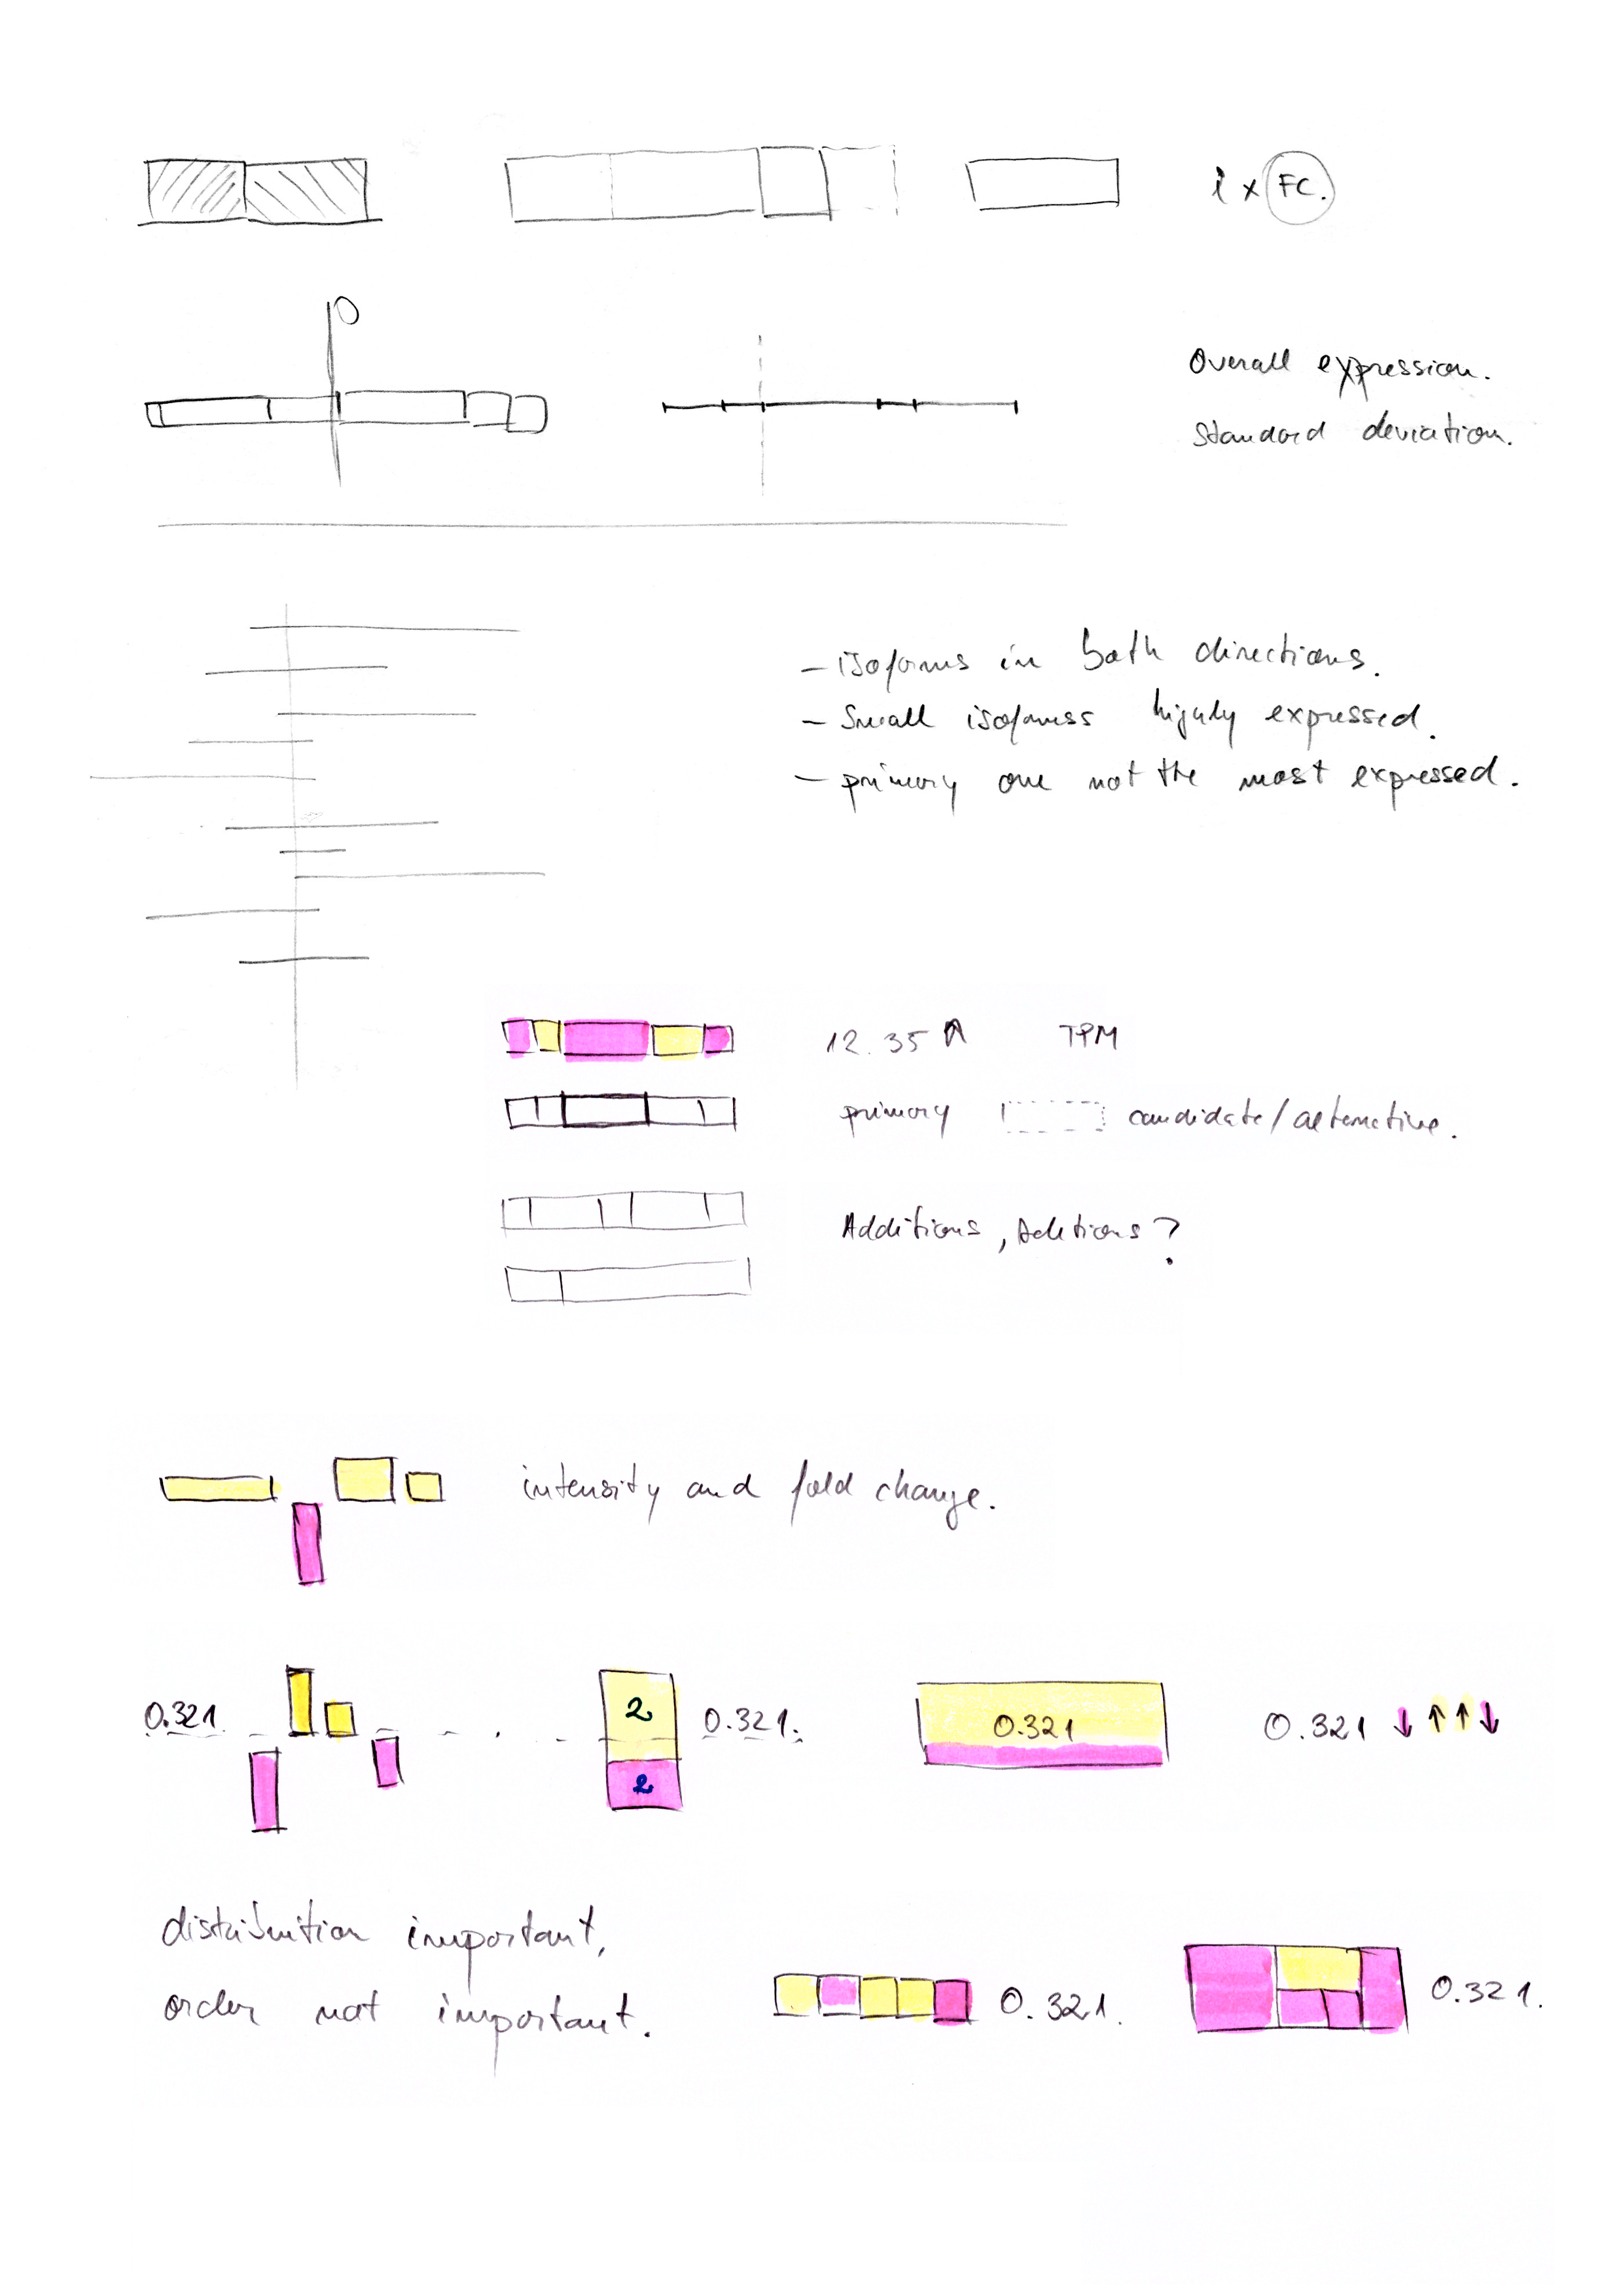 i x FC.
0
Overall expression.
Standard deviation.
– isoforms in both directions.
– Small isoformss highly expressed.
– primary one not the most expressed.
12.35 ↑ TPM
primary candidate/alternative.
Additions, deletions?
intensity and fold change.
0.321 2 0.321. 0.321 0.321 ↓ ↑ ↑ ↓
2
distribution important,
order not important.
0.321. 0.321.